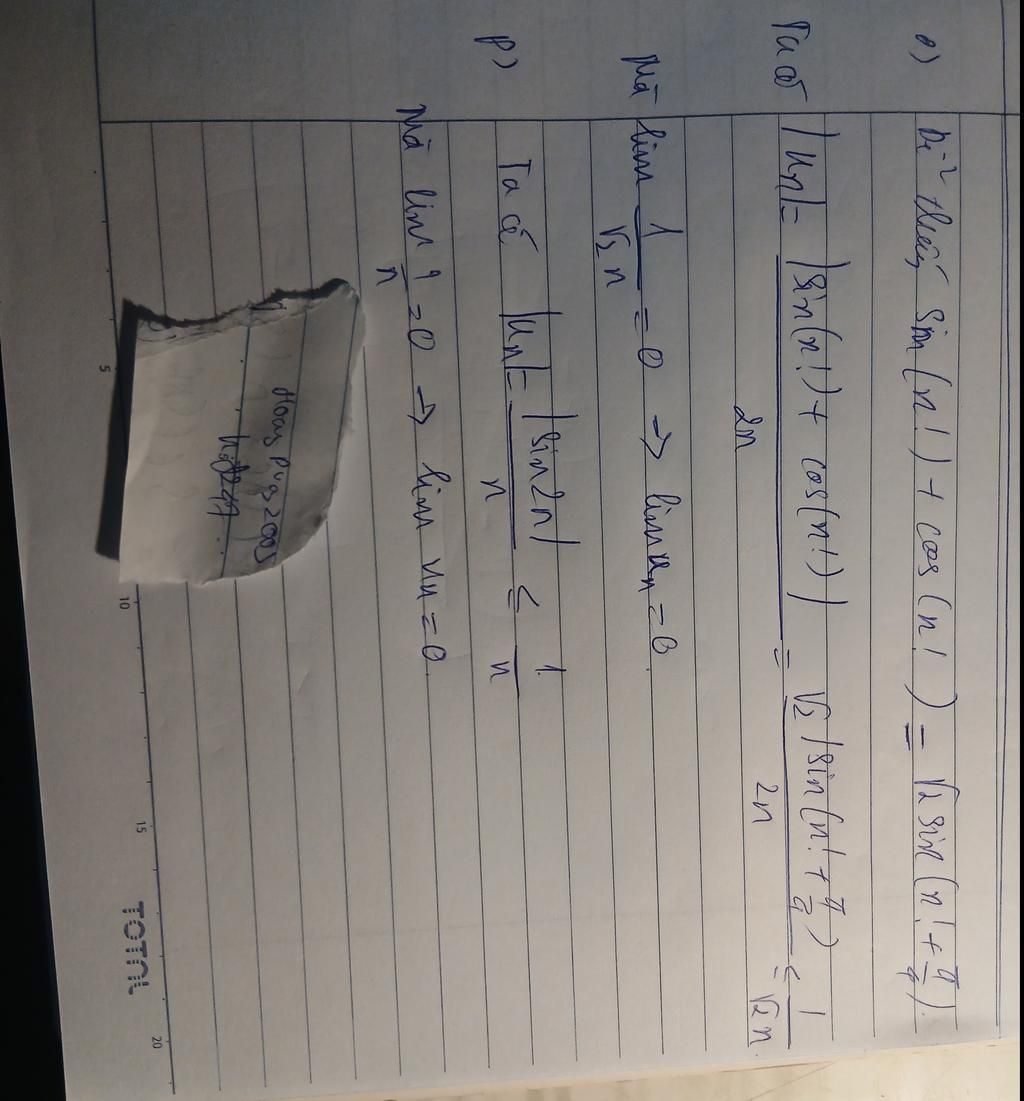 o) Dễ thấy sin(n!) + cos(n!) = √2 sin(n! + π/4).
Ta có |un| = |sin(n!) + cos(n!)| / 2n = √2 |sin(n! + π/4)| / 2n ≤ 1 / √2 n.
Mà lim 1 / √2 n = 0 → lim un = 0.
p) Ta có |un| = |sin2n| / n ≤ 1 / n
Mà lim 1 / n = 0 → lim un = 0.
5 10 15 20
TOTAL